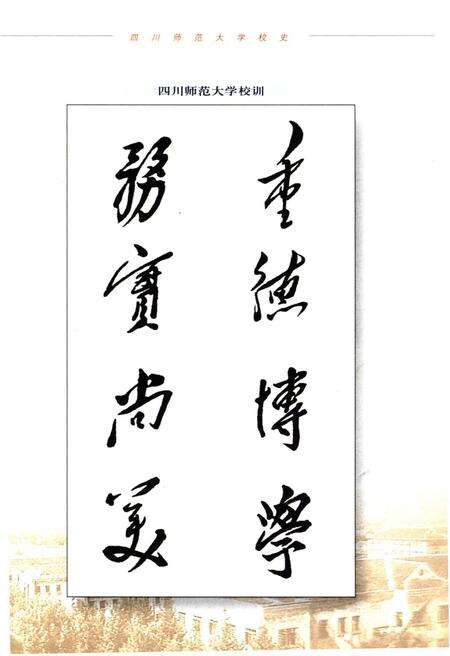 四川师范大学校史
四川师范大学校训
重德博學
務實尚美